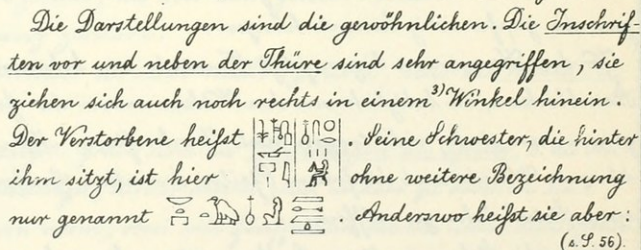 Die Darstellungen sind die gewöhnlichen. Die Inschrif-
ten vor und neben der Thüre sind sehr angegriffen, sie
ziehen sich auch noch rechts in einem³⁾ Winkel hinein.
Der Verstorbene heifst . Seine Schwester, die hinter
ihm sitzt, ist hier ohne weitere Bezeichnung
nur genannt . Anderswo heifst sie aber:
(s. S. 56).